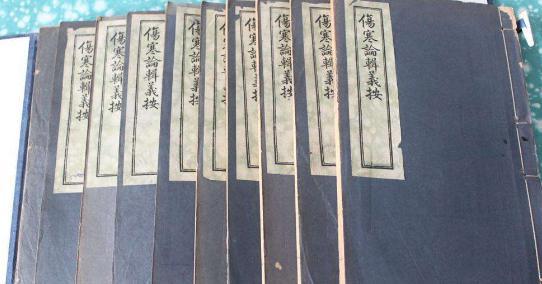 傷寒論輯義按
傷寒論輯義按
傷寒論輯義按
傷寒論輯義按
傷寒論輯義按
傷寒論輯義按
傷寒論輯義按
傷寒論輯義按